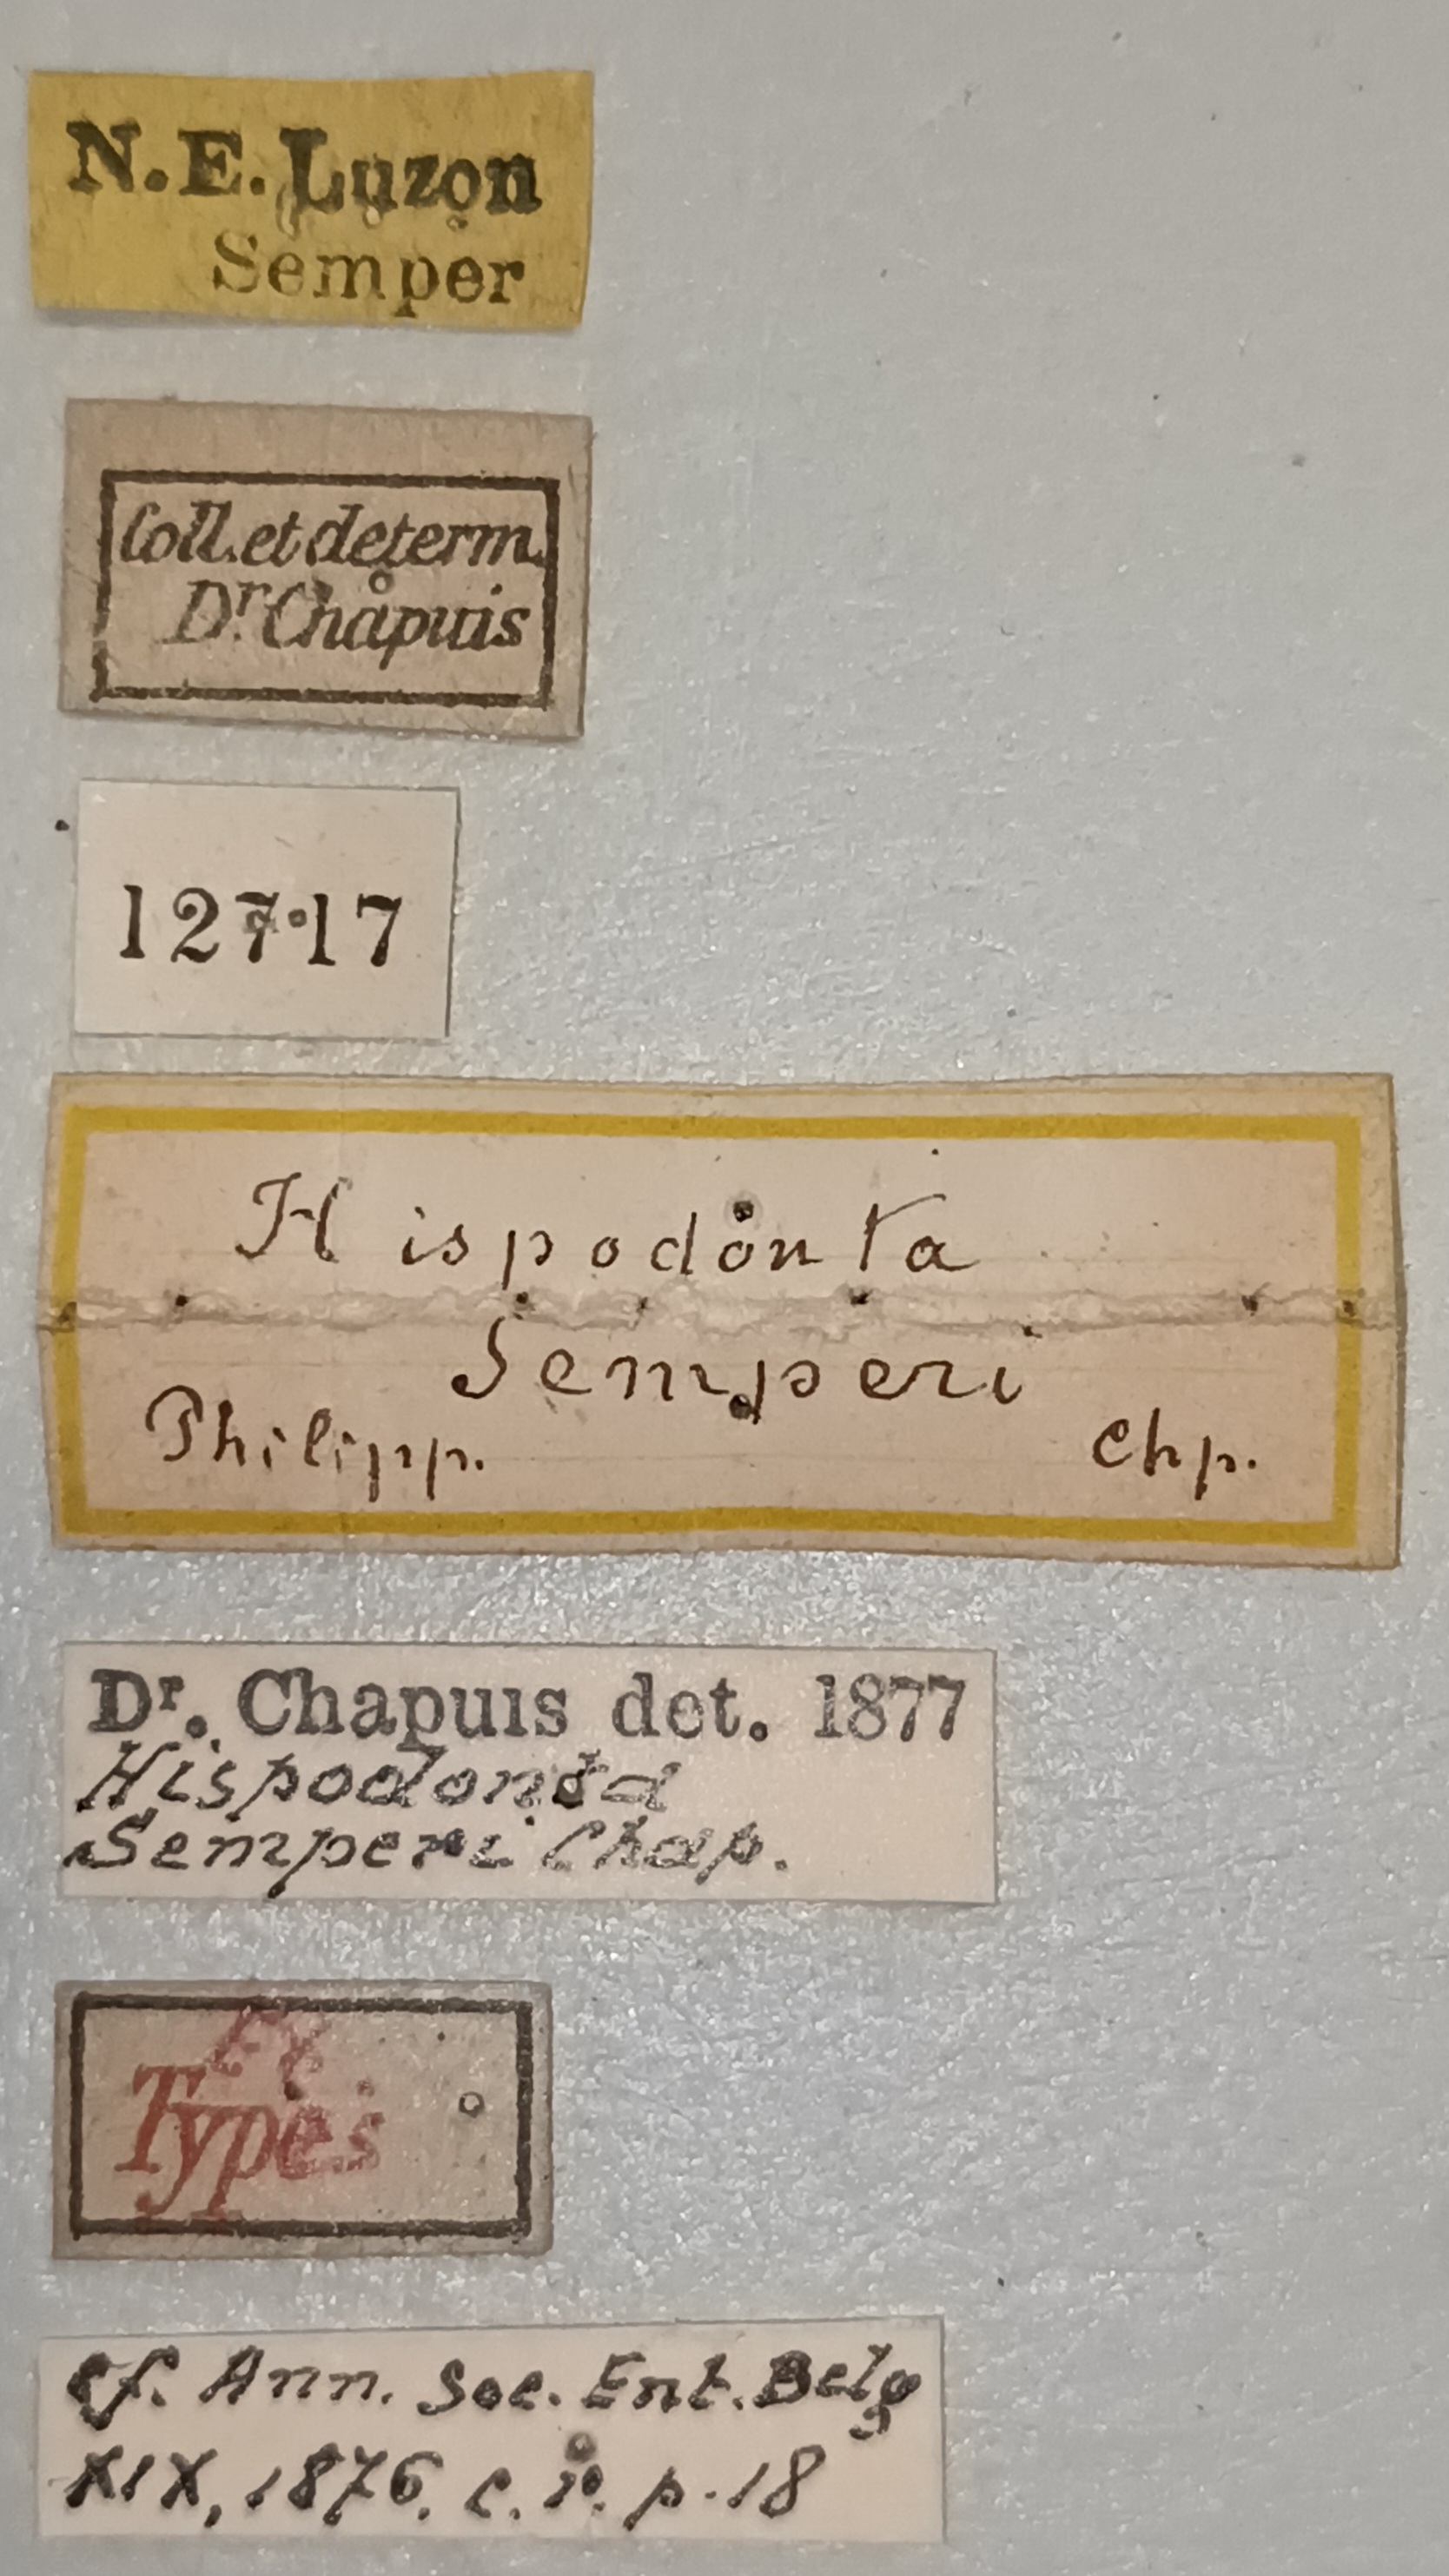 N.E. Luzon
Semper
Coll. et determ.
Dr. Chapuis
12717
Hispodonta
Semperi
Philipp. Chp.
Dr. Chapuis det. 1877
Hispodonta
Semperi Chap.
Types
cf. Ann. Soc. Ent. Belg
XIX, 1876. c. r. p. 18